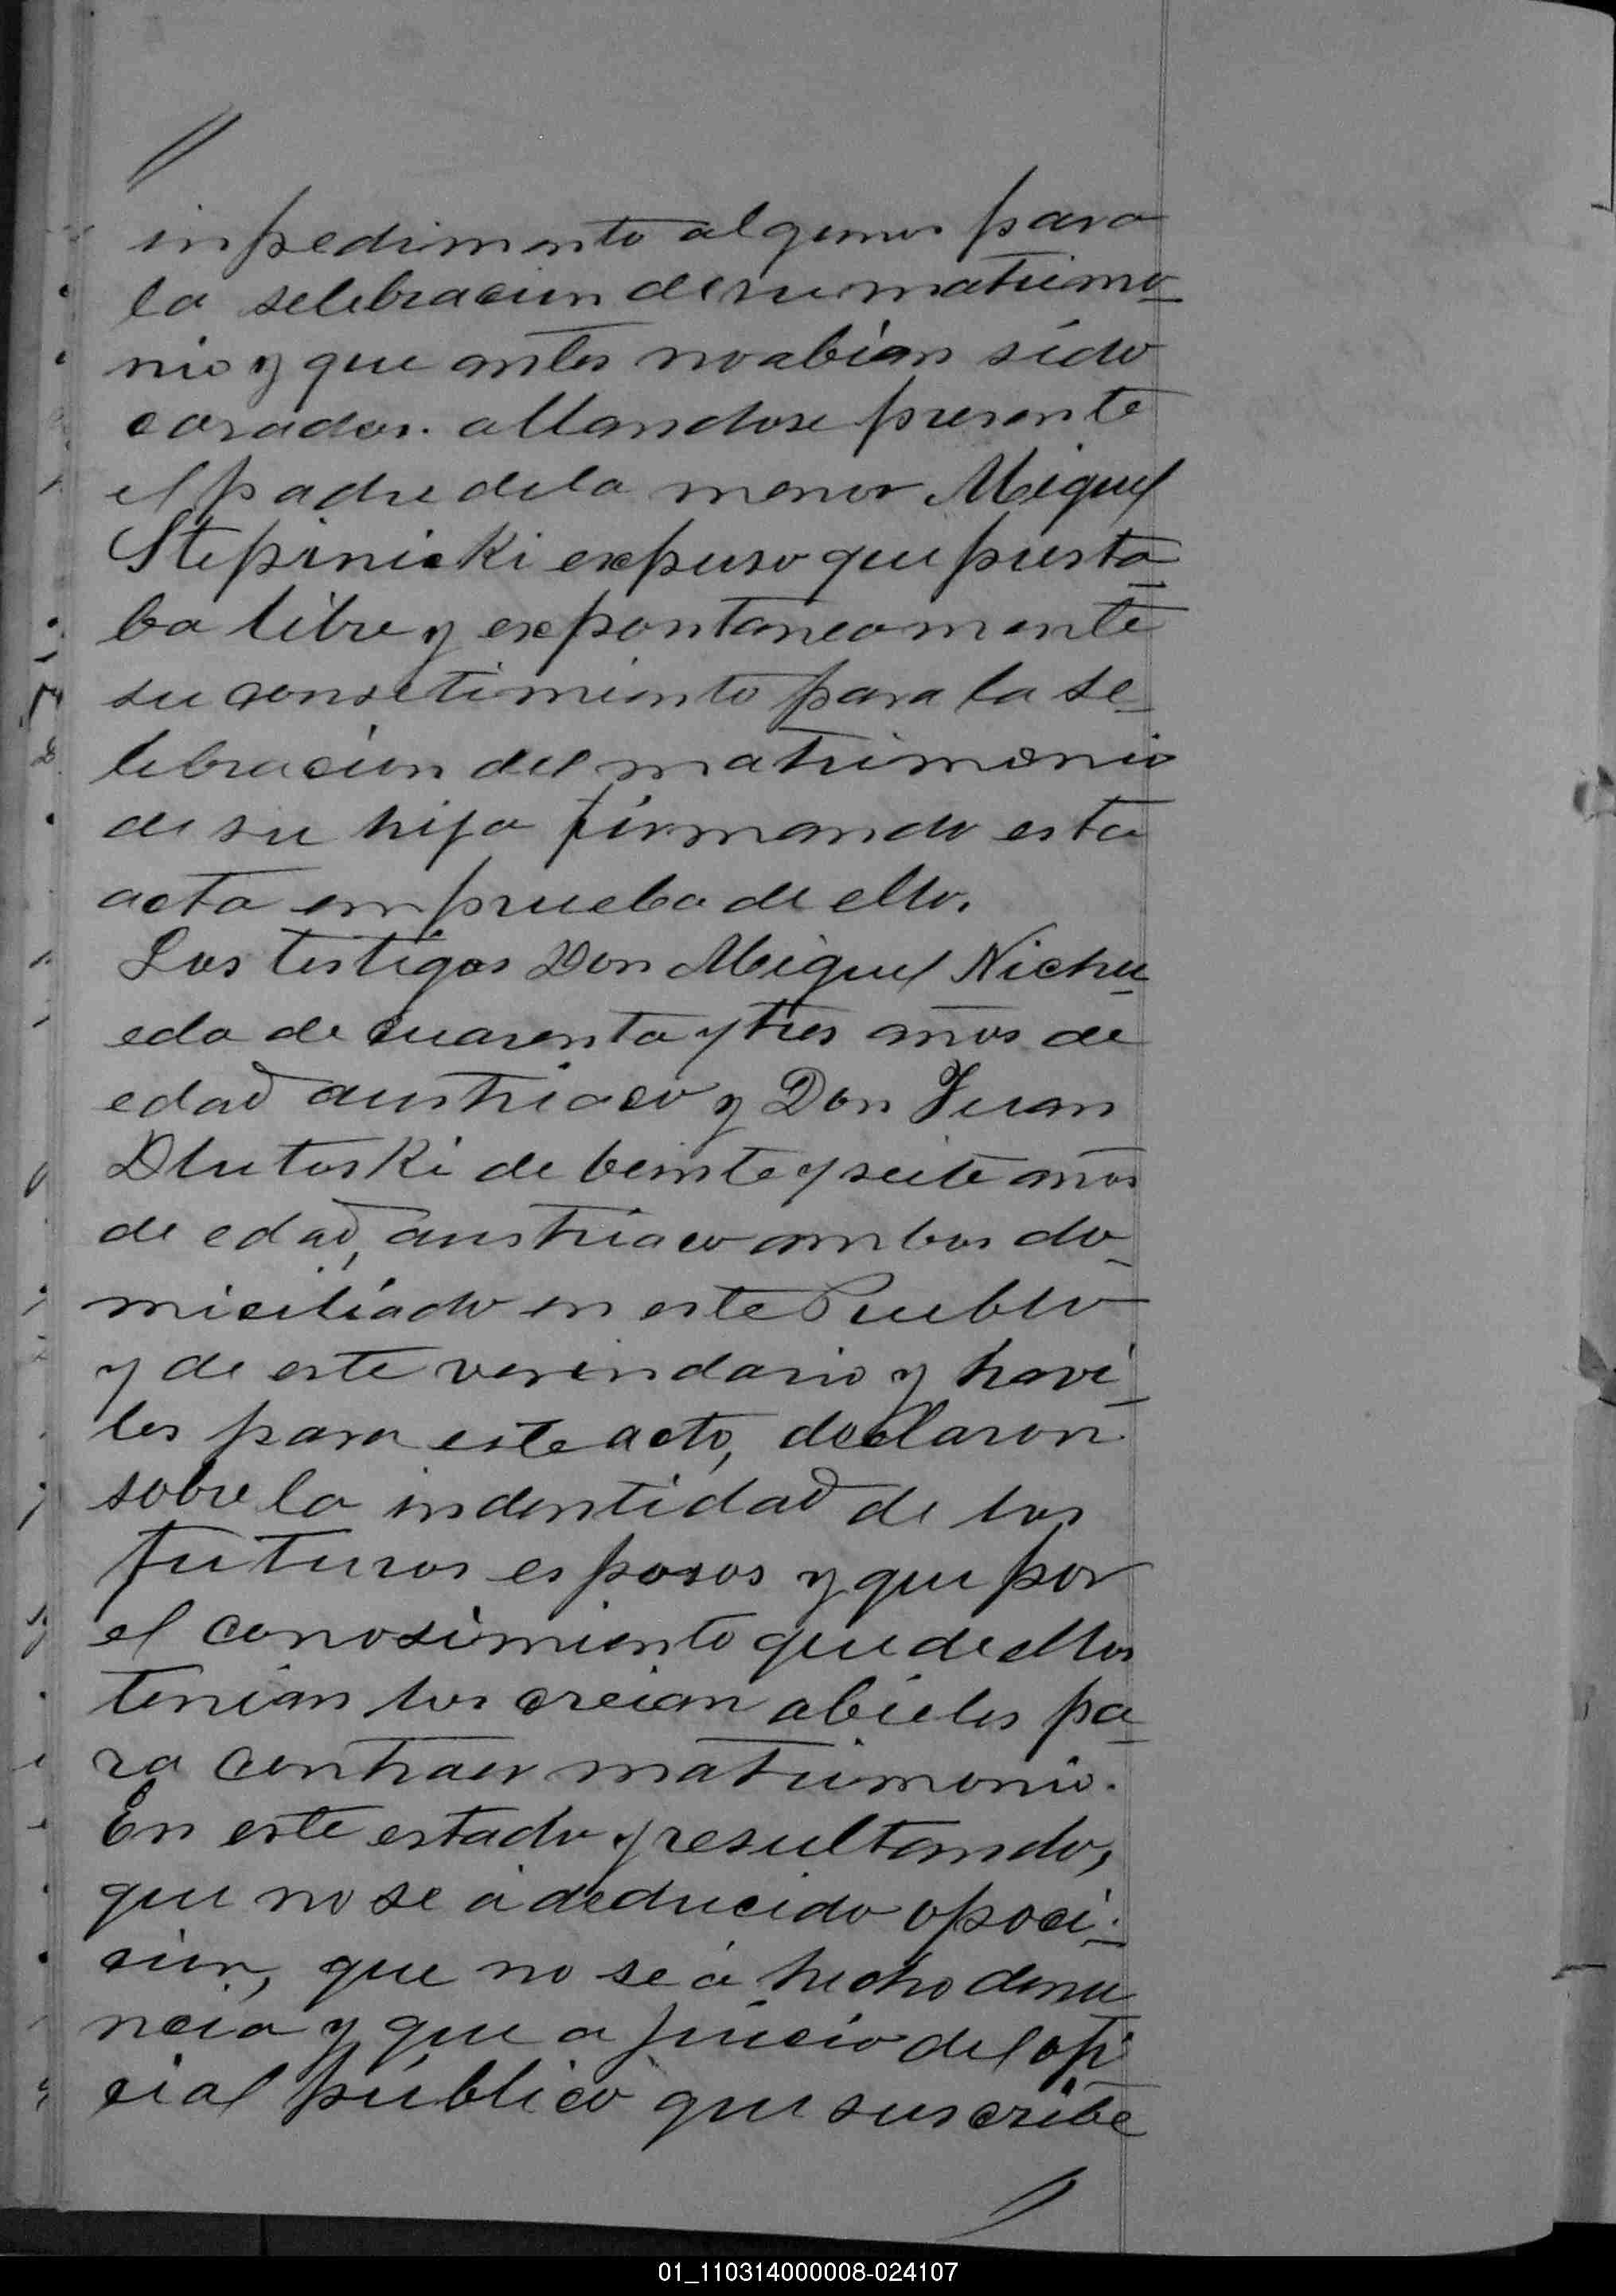 //
inpedimento algunos para
la selebracion de su matrimo-
nio y que antes no abian sido
casados. allandose presente
el padre de la menor Miguel
Stepinicki expuso que presta-
ba libre y expontaneamente
su consetimiento para la se-
lebracion del matrimonio
de su hija firmando esta
acta em prueba de ello.
Los testigos Don Miguel Nichu-
eda de cuarenta y tres años de
edad austriaco y Don Juan
Dlutoski de beinte y seite años
de edad, austriaco ambos do-
misiliado en este Pueblo
y de este vesindario y havi-
les para este acto, declaron
sobre la indentidad de los
futuros esposos y que por
el conosimiento que de ellos
tenian los creian abieles pa-
ra contraer matrimonio.
En este estado y resultando,
que no se á deducido oposi-
cion, que no se á hecho denu-
ncia y que a juicio del ofi-
cial público que suscribe